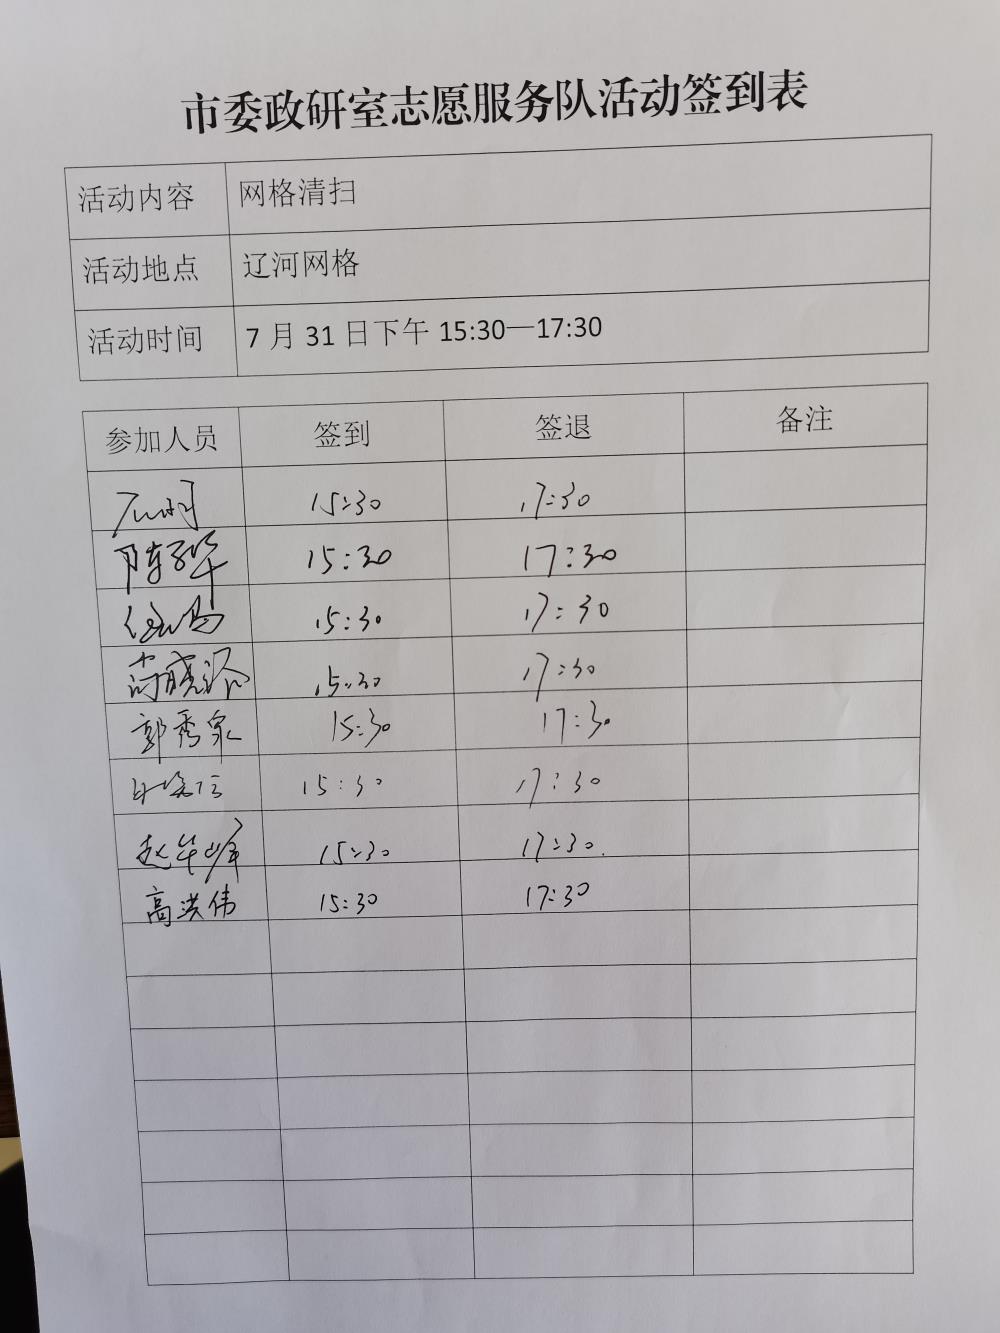 市委政研室志愿服务队活动签到表
活动内容 网格清扫
活动地点 辽河网格
活动时间 7月31日下午15:30—17:30
参加人员 签到 签退 备注
15:30 17:30
15:30 17:30
15:30 17:30
15:30 17:30
郭秀泉 15:30 17:30
15:30 17:30
赵华峰 15:30 17:30
高洪伟 15:30 17:30